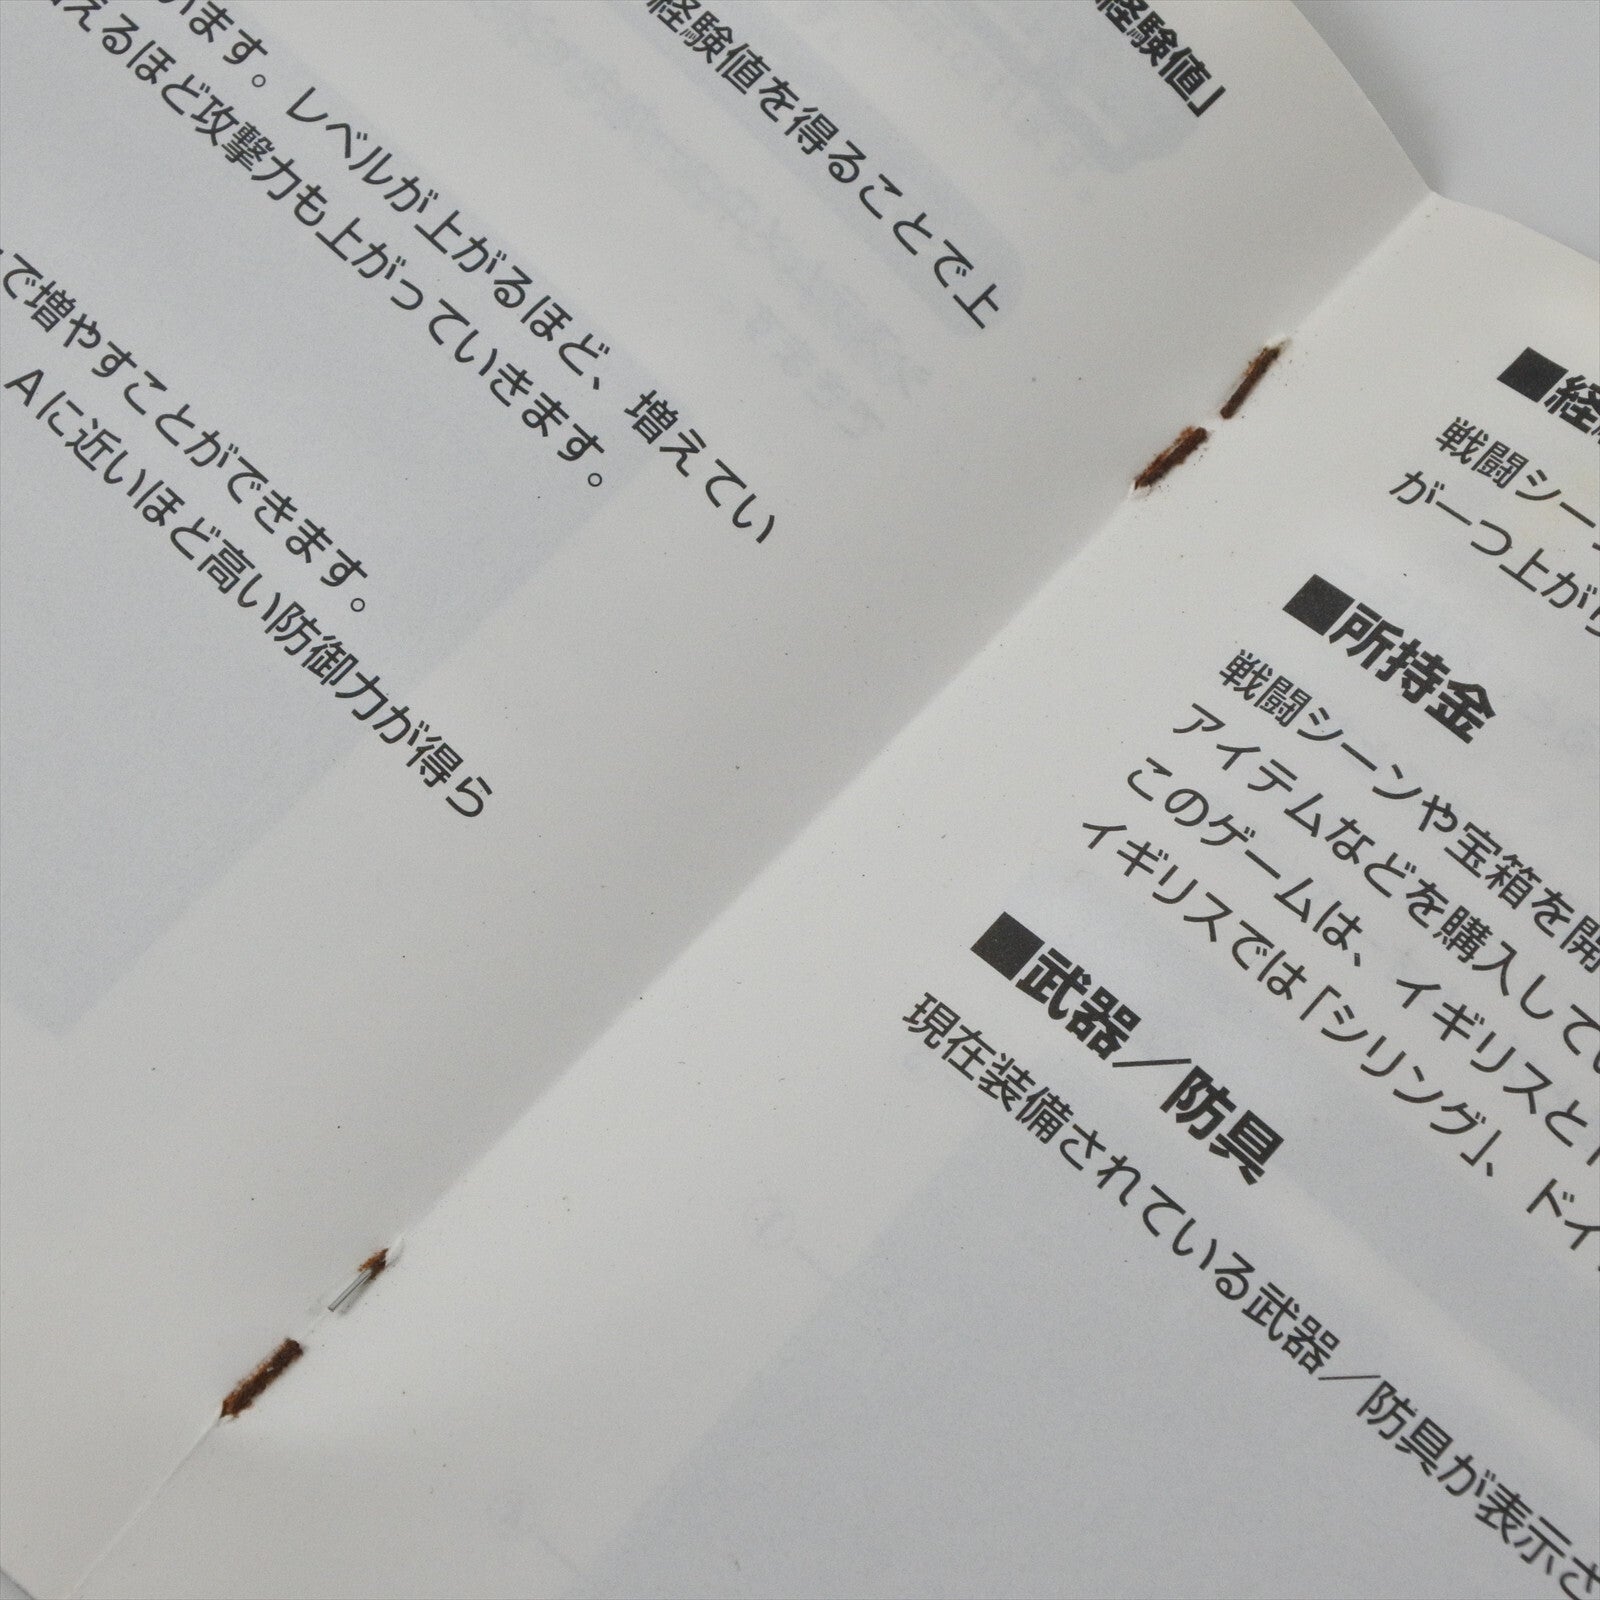 経験値」
経験値を得ることで上
います。レベルが上がるほど、増えてい
えるほど攻撃力も上がっていきます。
で増やすことができます。
Aに近いほど高い防御力が得ら
■経
戦闘シー
が一つ上がり
■所持金
戦闘シーンや宝箱を開
アイテムなどを購入して
このゲームは、イギリスとド
イギリスでは「シリング」、ドイ
■武器／防具
現在装備されている武器／防具が表示さ